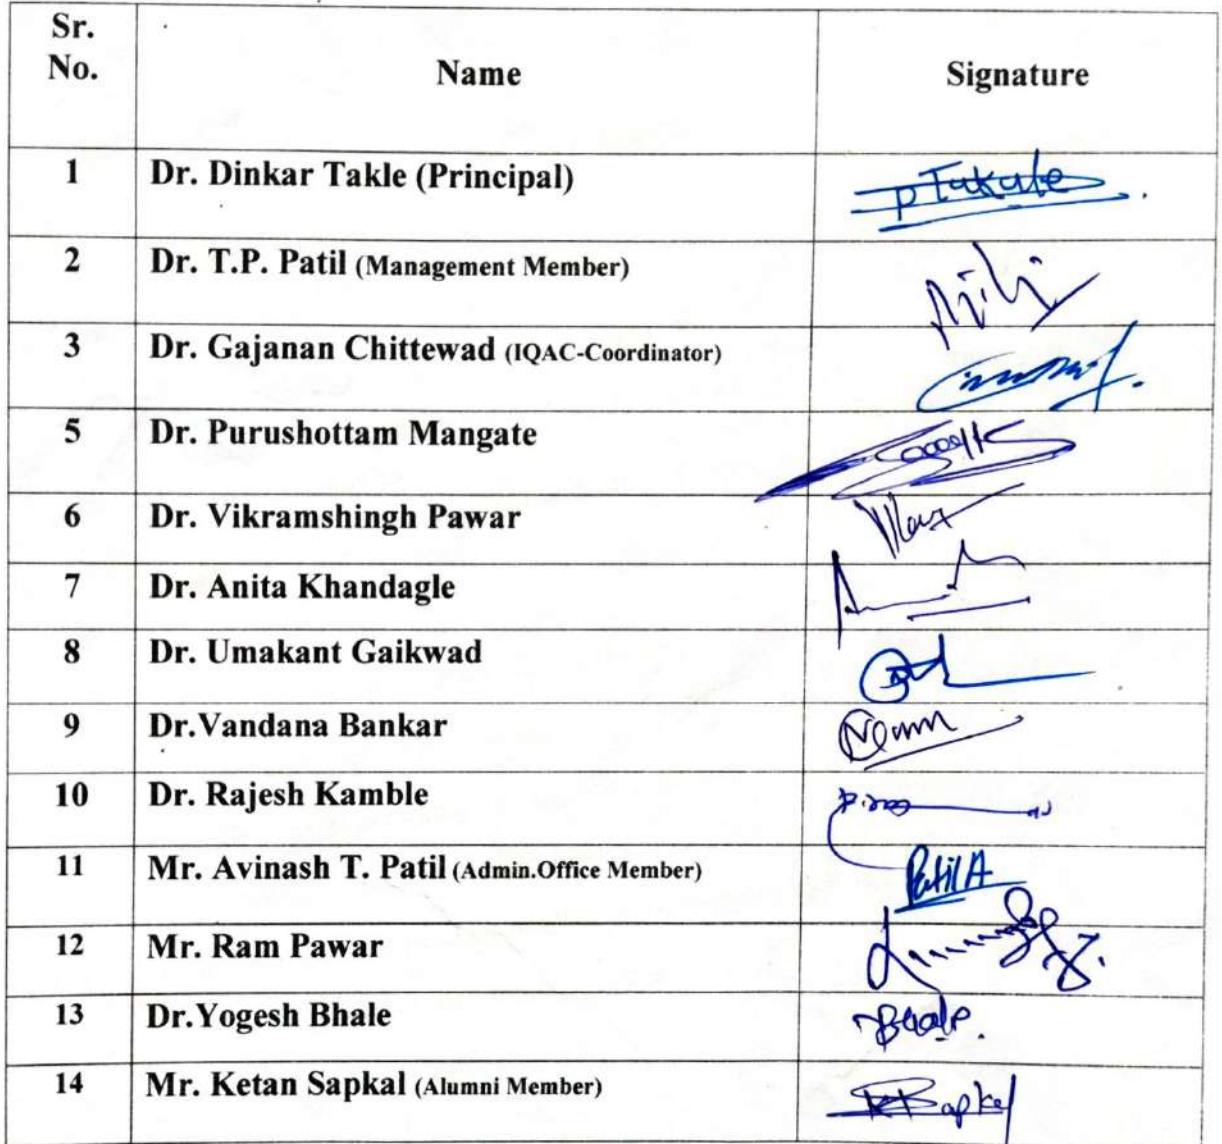 Sr. No. Name Signature
1 Dr. Dinkar Takle (Principal) Takale
2 Dr. T.P. Patil (Management Member)
3 Dr. Gajanan Chittewad (IQAC-Coordinator)
5 Dr. Purushottam Mangate
6 Dr. Vikramshingh Pawar
7 Dr. Anita Khandagle
8 Dr. Umakant Gaikwad
9 Dr.Vandana Bankar
10 Dr. Rajesh Kamble
11 Mr. Avinash T. Patil (Admin.Office Member) Patil A
12 Mr. Ram Pawar
13 Dr.Yogesh Bhale Bhale.
14 Mr. Ketan Sapkal (Alumni Member) Sapkal